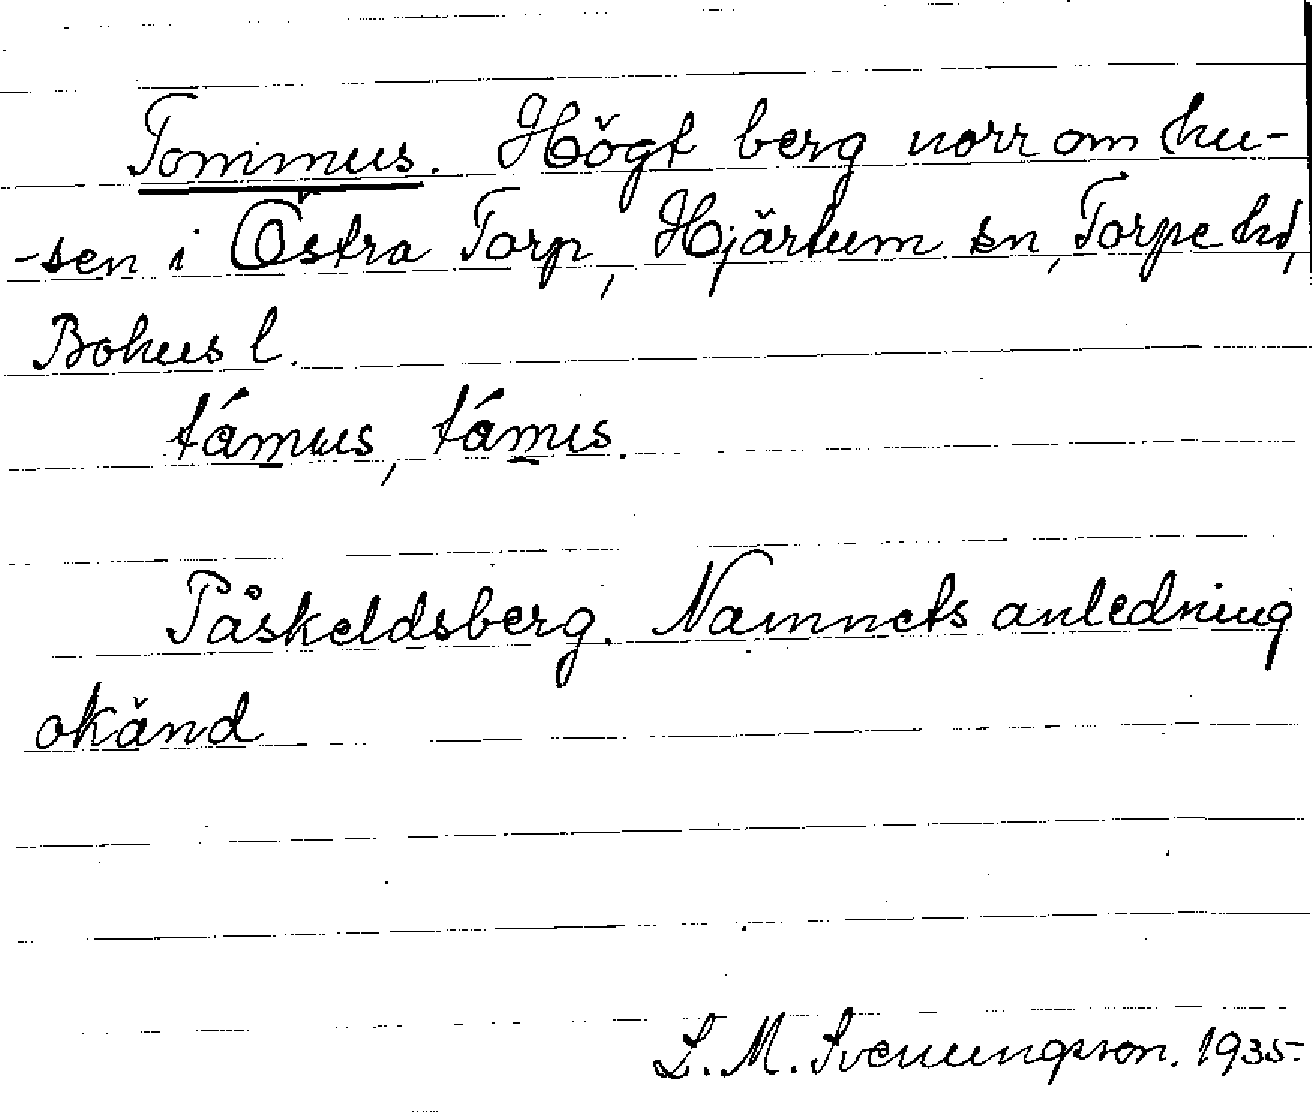 Tommus. Högt berg norr om hu-
-sen i Östra Torp, Hjärtum sn, Torpe hd,
Bohus l.
támus, támıs.
Påskeldsberg. Namnets anledning
okänd
L. M. Svenungson. 1935.